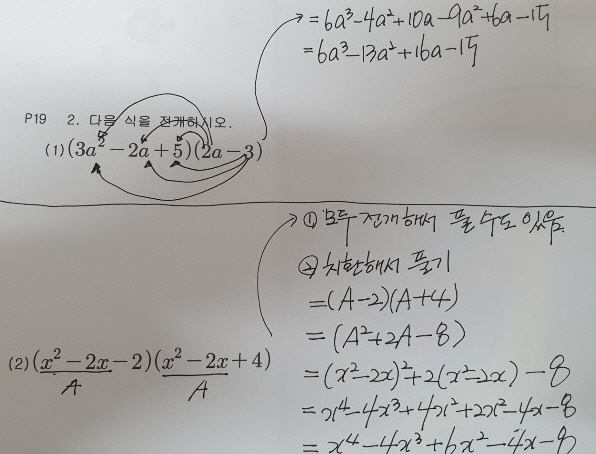 = 6a³-4a²+10a-9a²+6a-15
= 6a³-13a²+16a-15
P19 2. 다음 식을 전개하시오.
(1) (3a² - 2a + 5)(2a - 3)
① 모두 전개해서 풀 수도 있음.
② 치환해서 풀기
= (A-2)(A+4)
= (A²+2A-8)
(2) (x² - 2x - 2)(x² - 2x + 4)
A A
= (x²-2x)²+2(x²-2x) - 8
= x⁴-4x³+4x²+2x²-4x-8
= x⁴-4x³+6x²-4x-8